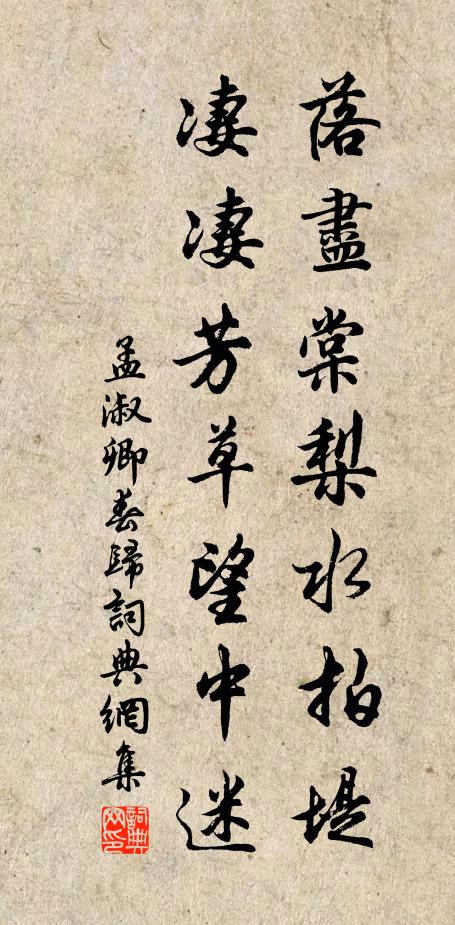 落盡棠梨水拍堤
凄凄芳草望中迷
孟淑卿春歸詞典網集
詞典網印